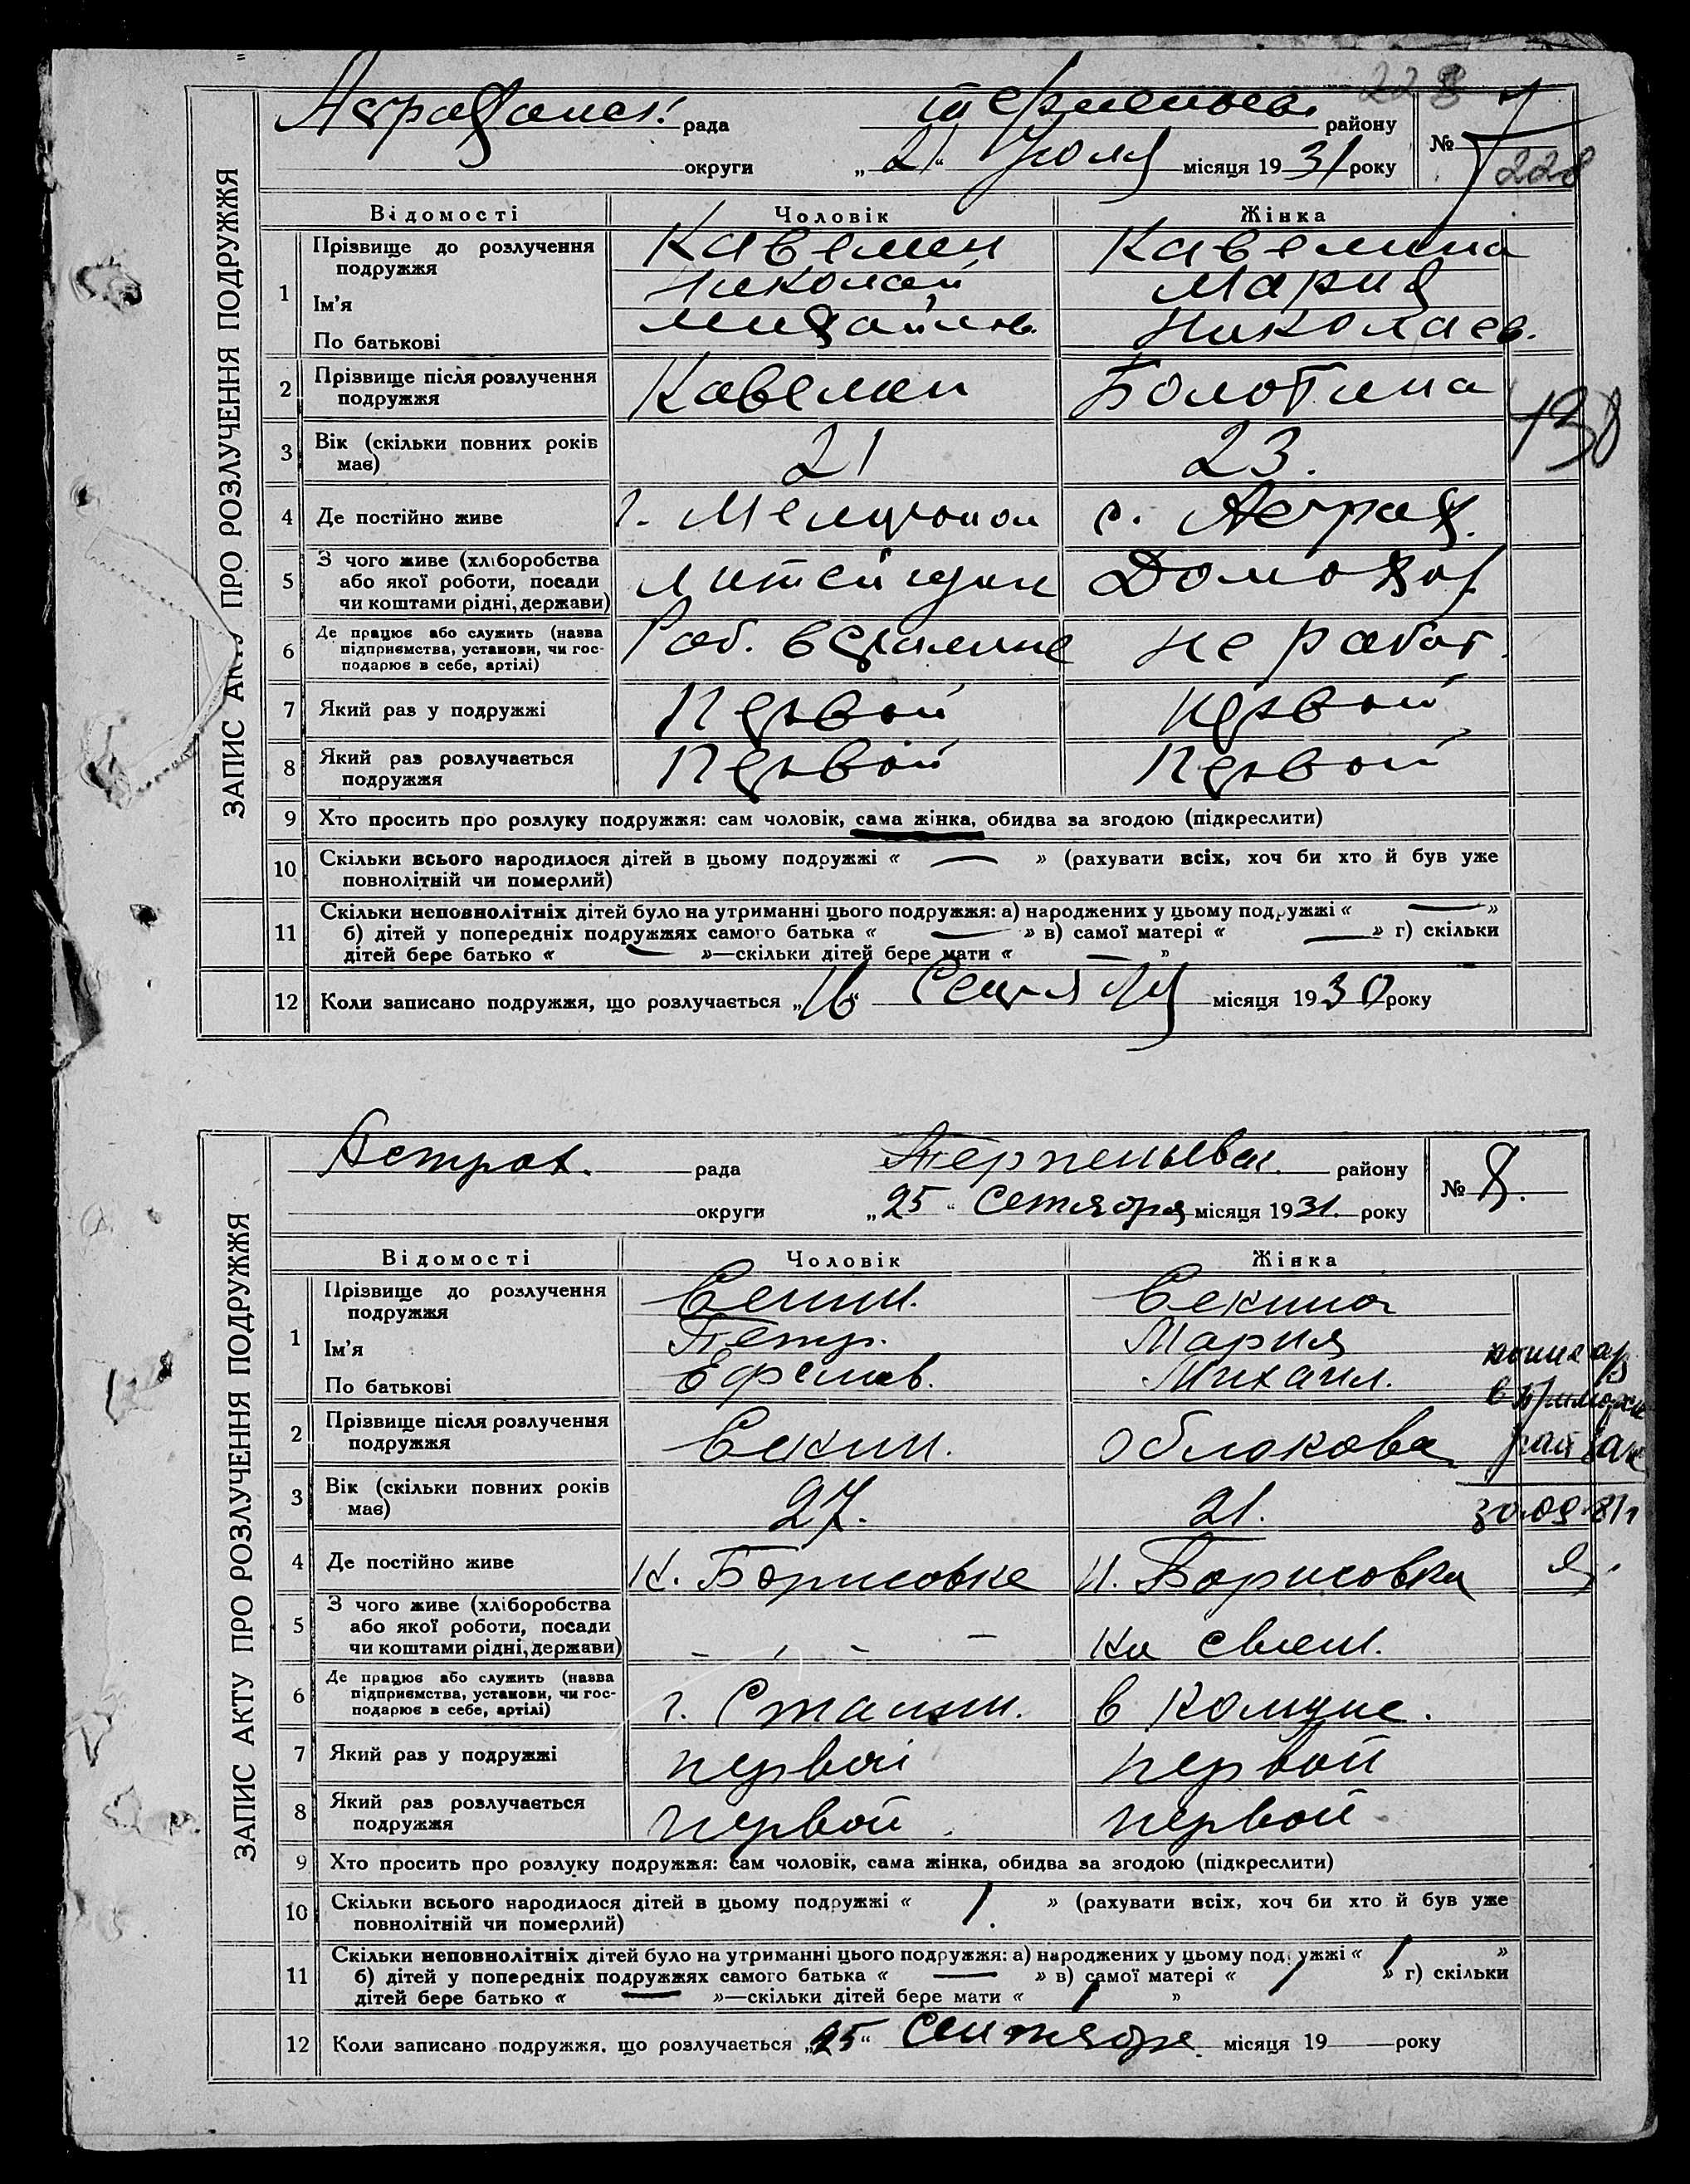 228
Астраханск. рада Терпеньев. району № 7
округи „21“ Июля місяця 1931 року 228
ЗАПИС АКТУ ПРО РОЗЛУЧЕННЯ ПОДРУЖЖЯ
Відомості Чоловік Жінка
1 Прізвище до розлучення подружжя Кавелин Кавелина
Ім'я Николай Мария
По батькові Михайлов. Николаев.
2 Прізвище після розлучення подружжя Кавелин Болотина
3 Вік (скільки повних років має) 21 23.
138
4 Де постійно живе г. Мелитопол с. Астрах.
5 З чого живе (хліборобства або якої роботи, посади чи коштами рідні, держави) Литейщик Домохоз
6 Де працює або служить (назва підприємства, установи, чи господарює в себе, артілі) Раб. не работ.
7 Який раз у подружжі Первой Первой
8 Який раз розлучається подружжя Первой Первой
9 Хто просить про розлуку подружжя: сам чоловік, сама жінка, обидва за згодою (підкреслити)
10 Скільки всього народилося дітей в цьому подружжі « — » (рахувати всіх, хоч би хто й був уже
повнолітній чи померлий)
11 Скільки неповнолітніх дітей було на утриманні цього подружжя: а) народжених у цьому подружжі « — »
б) дітей у попередніх подружжях самого батька « — » в) самої матері « — » г) скільки
дітей бере батько « — »—скільки дітей бере мати « »
12 Коли записано подружжя, що розлучається „16“ Сентября місяця 1930 року
Астрах. рада Терпеньевск. району № 8.
округи „25“ Сетября місяця 1931. року
ЗАПИС АКТУ ПРО РОЗЛУЧЕННЯ ПОДРУЖЖЯ
Відомості Чоловік Жінка
1 Прізвище до розлучення подружжя Секин. Секина
Ім'я Петр. Мария
По батькові Ефимов. Михаил.
2 Прізвище після розлучення подружжя Секин. Облокова
3 Вік (скільки повних років має) 27. 21.
30.09.81г
4 Де постійно живе К. Борисовке К. Борисовка
5 З чого живе (хліборобства або якої роботи, посади чи коштами рідні, держави) – – – На
6 Де працює або служить (назва підприємства, установи, чи господарює в себе, артілі) г. Сталин. в Комуне.
7 Який раз у подружжі первой первой
8 Який раз розлучається подружжя первой первой
9 Хто просить про розлуку подружжя: сам чоловік, сама жінка, обидва за згодою (підкреслити)
10 Скільки всього народилося дітей в цьому подружжі « 1. » (рахувати всіх, хоч би хто й був уже
повнолітній чи померлий)
11 Скільки неповнолітніх дітей було на утриманні цього подружжя: а) народжених у цьому подружжі « 1 »
б) дітей у попередніх подружжях самого батька « — » в) самої матері « 1 » г) скільки
дітей бере батько « — »—скільки дітей бере мати « 1 »
12 Коли записано подружжя, що розлучається „25“ Сентября місяця 19 року